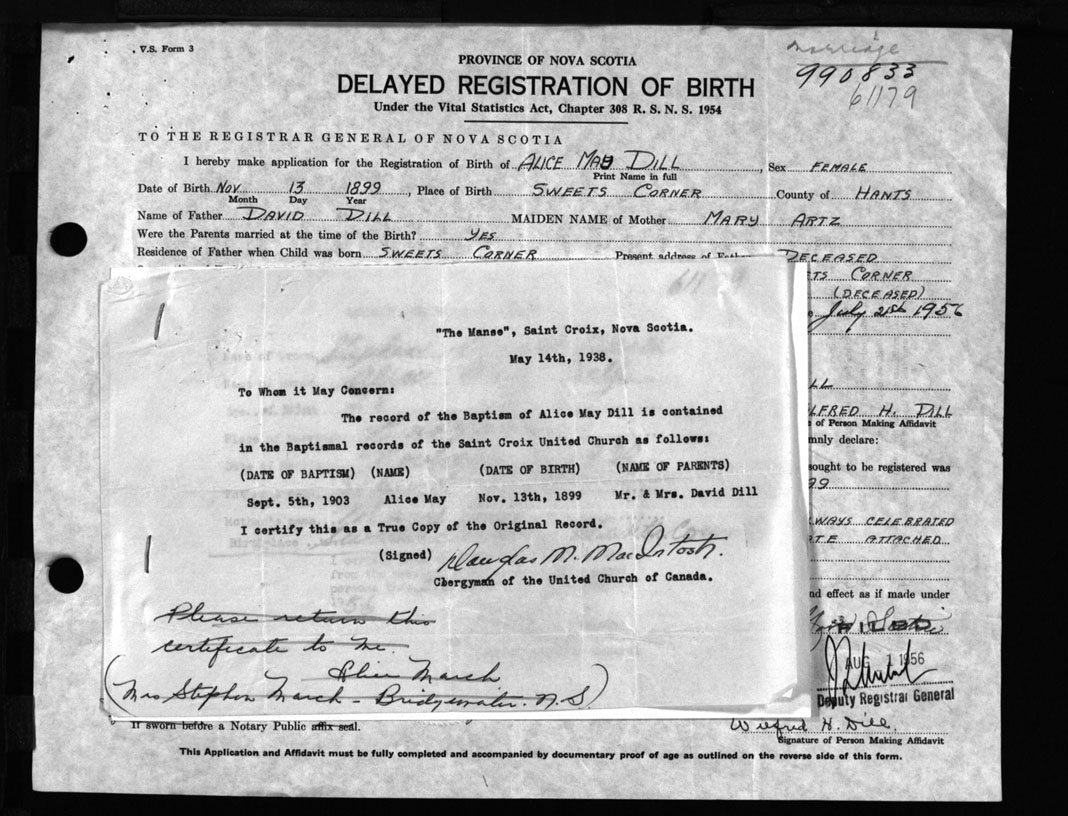 V.S. Form 3
Marriage
990833
61179
PROVINCE OF NOVA SCOTIA
DELAYED REGISTRATION OF BIRTH
Under the Vital Statistics Act, Chapter 308 R. S. N. S. 1954
TO THE REGISTRAR GENERAL OF NOVA SCOTIA
I hereby make application for the Registration of Birth of ALICE MAY DILL, Sex FEMALE
Print Name in full
Date of Birth NOV 13 1899, Place of Birth SWEETS CORNER County of HANTS
Month Day Year
Name of Father DAVID DILL MAIDEN NAME of Mother MARY ARTZ
Were the Parents married at the time of the Birth? YES
Residence of Father when Child was born SWEETS CORNER Present address of Father DECEASED
TS CORNER
(DECEASED)
July 21st 1956
LL
LFRED H. DILL
of Person Making Affidavit
mnly declare:
sought to be registered was
99
WAYS CELEBRATED
ATE ATTACHED
nd effect as if made under
AUG 1 1956
Deputy Registrar General
"The Manse", Saint Croix, Nova Scotia.
May 14th, 1938.
To Whom it May Concern:
The record of the Baptism of Alice May Dill is contained
in the Baptismal records of the Saint Croix United Church as follows:
(DATE OF BAPTISM) (NAME) (DATE OF BIRTH) (NAME OF PARENTS)
Sept. 5th, 1903 Alice May Nov. 13th, 1899 Mr. & Mrs. David Dill
I certify this as a True Copy of the Original Record.
(Signed) Douglas M. MacIntosh.
Clergyman of the United Church of Canada.
Please return this
certificate to me
Alice March
(Mrs Stephen March - Bridgewater. N.S)
If sworn before a Notary Public affix seal.
Wilfred H. Dill
Signature of Person Making Affidavit
This Application and Affidavit must be fully completed and accompanied by documentary proof of age as outlined on the reverse side of this form.